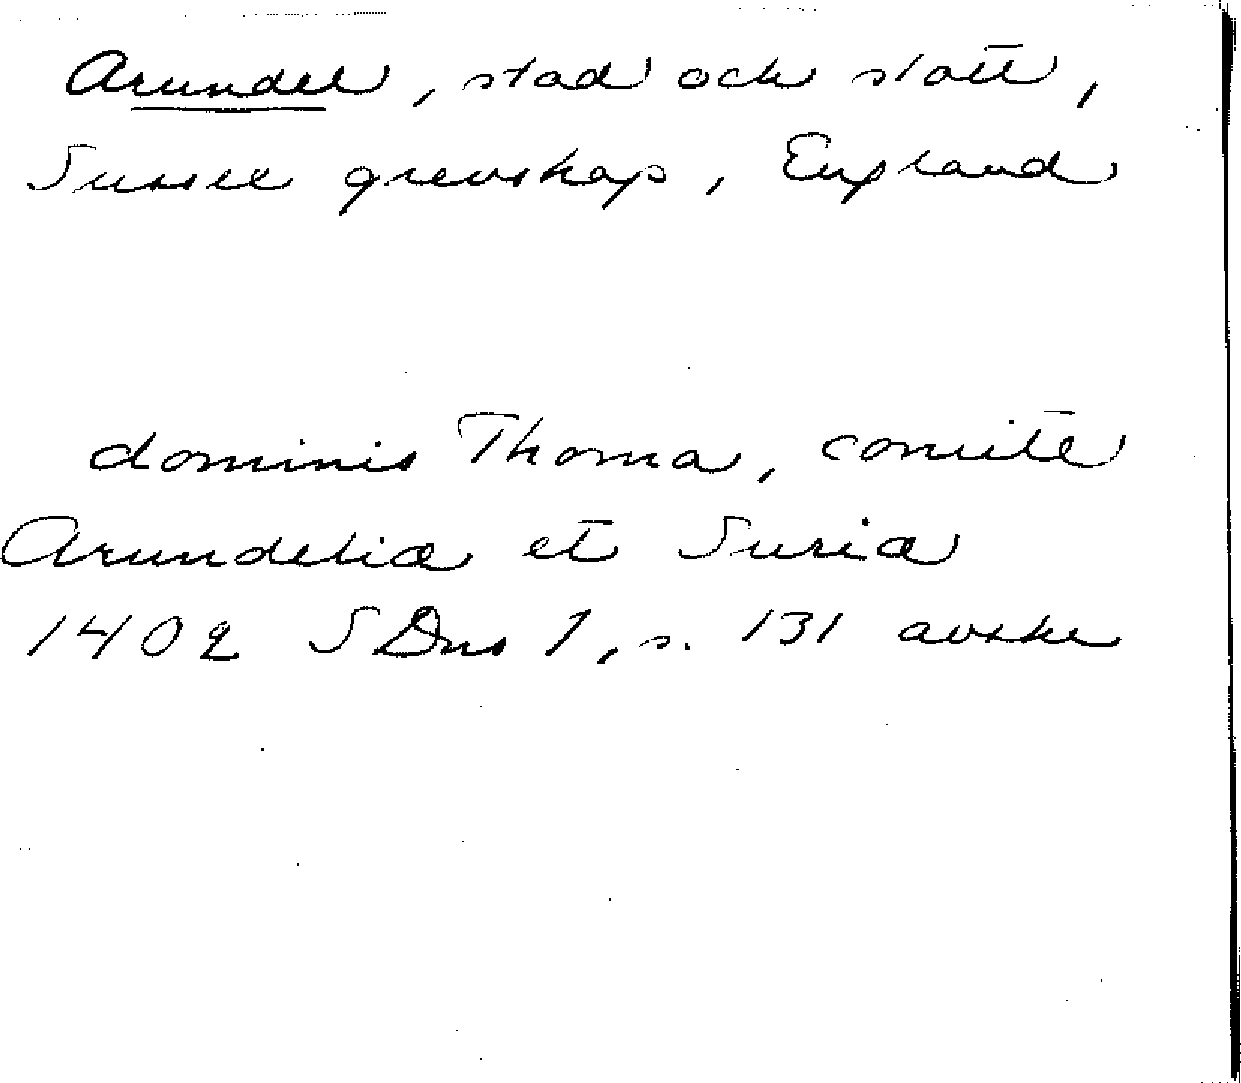 Arundel, stad och slott,
Sussex grevskap, England
dominis Thoma, comite
Arundelia et Suria
1402 SDns 1, s. 131 avskr